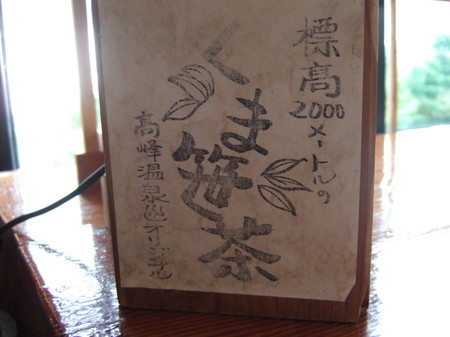 標高2000メートルの
くま笹茶
高峰温泉オリジナル